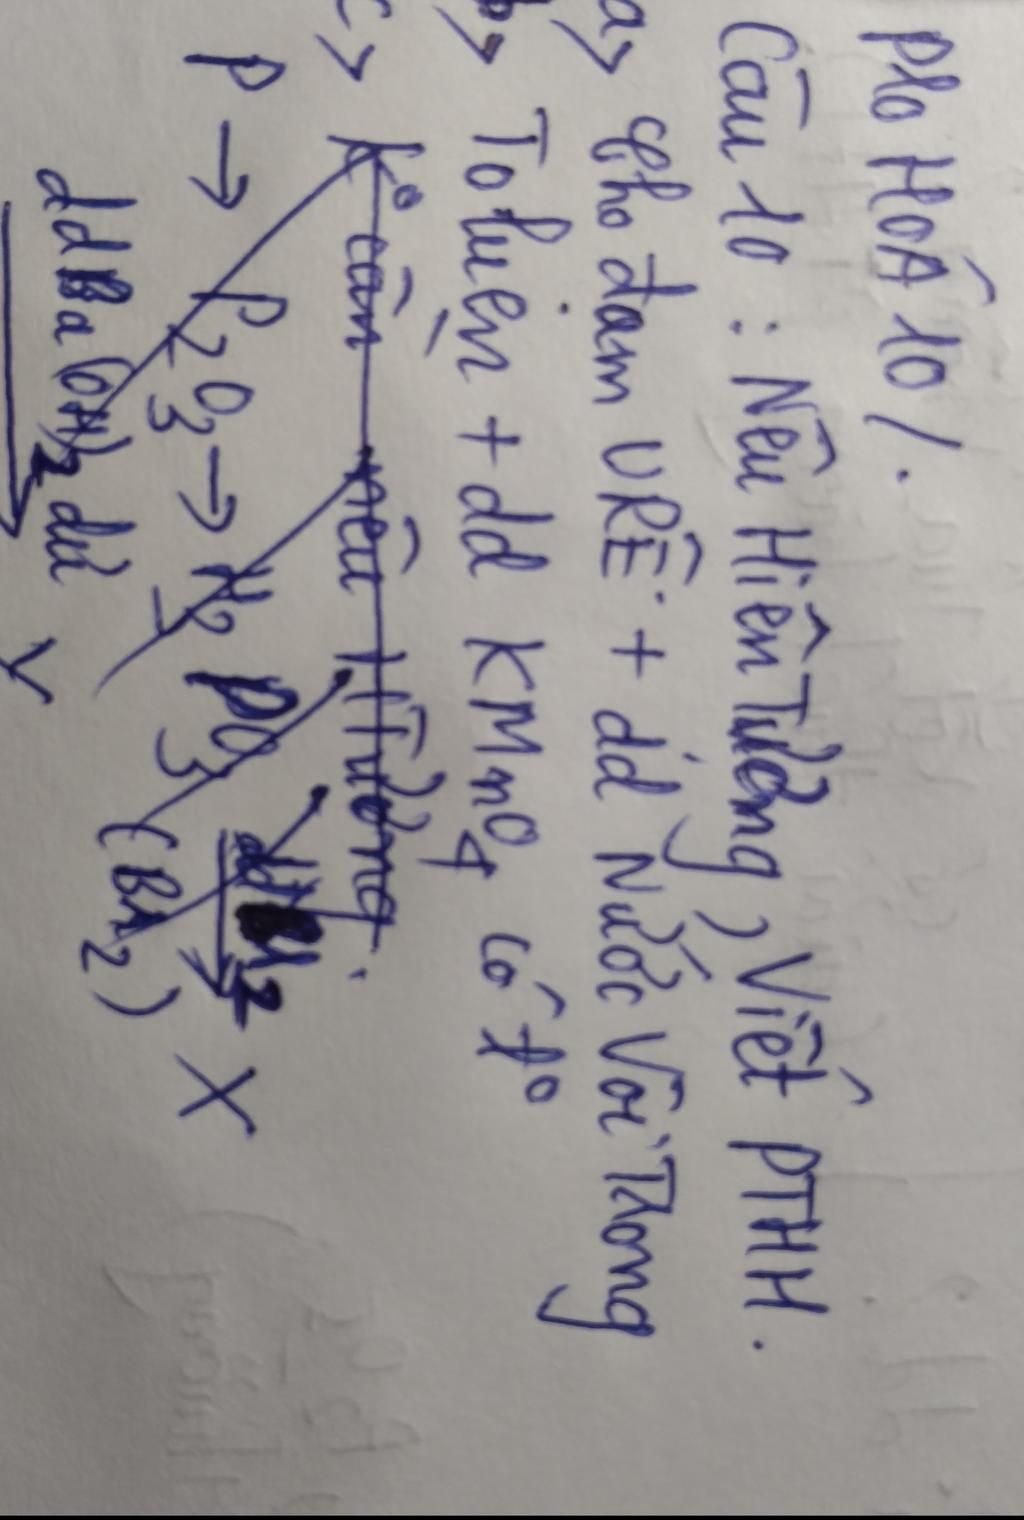 Pho HOÁ 10/.
Câu 10 : Nêu Hiện Tượng, Viết PTHH.
a> cho đạm URÊ + dd Nước Vôi Trong
b> Toluen + dd KMnO4 có to
c> Ko cần nêu HTượng.
P → P2O3 → H3PO3 X
(Br2)
dd Ba(OH)2 dư Y